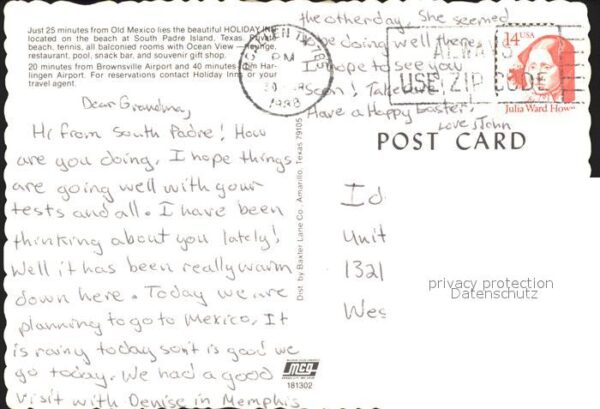 Just 25 minutes from Old Mexico lies the beautiful HOLIDAY INN
located on the beach at South Padre Island, Texas. Private
beach, tennis, all balconied rooms with Ocean View — lounge,
restaurant, pool, snack bar, and souvenir gift shop.
20 minutes from Brownsville Airport and 40 minutes from Har-
lingen Airport. For reservations contact Holiday Inns or your
travel agent.
Dear Grandma,
Hi from South Padre! How
are you doing. I hope things
are going well with your
tests and all. I have been
thinking about you lately!
Well it has been really warm
down here. Today we are
planning to go to Mexico. It
is rainy today so it is good we
go today. We had a good
visit with Denise in Memphis
the other day. She seemed
to be doing well there.
I hope to see you
soon! Take care
Have a Happy Easter!
Love, John
PM
1988
ALWAYS
USE ZIP CODE
14 USA
Julia Ward Howe
POST CARD
Id
Unit
1321
Wes
Dist. by Baxter Lane Co., Amarillo, Texas 79105
181302
privacy protection
Datenschutz